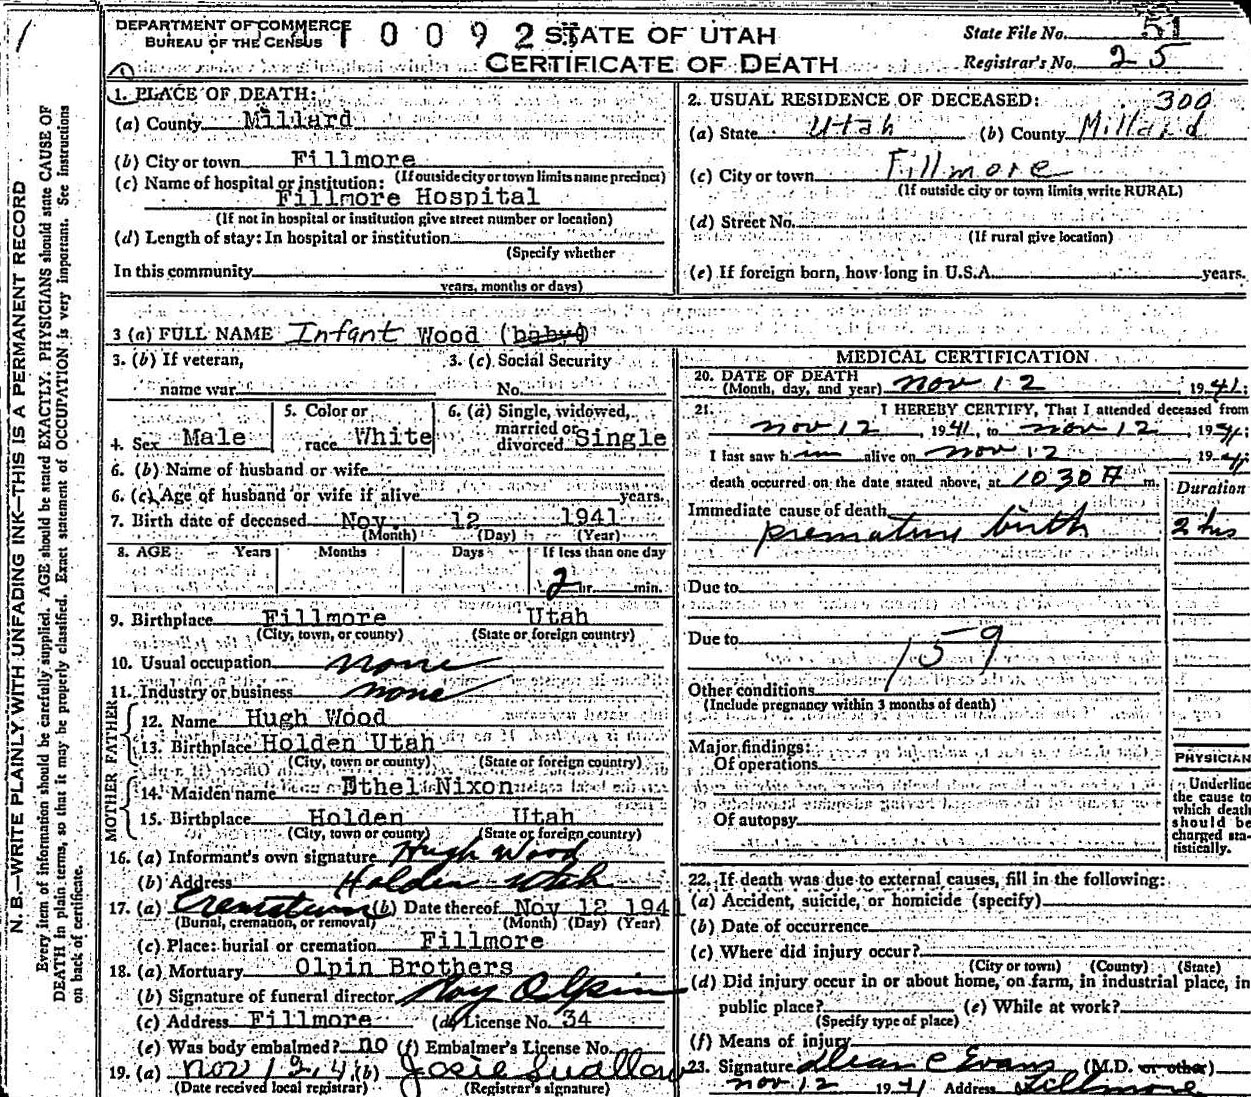 DEPARTMENT OF COMMERCE
BUREAU OF THE CENSUS
0 0 9 2
STATE OF UTAH
CERTIFICATE OF DEATH
State File No. 51
Registrar's No. 25
N. B.—WRITE PLAINLY WITH UNFADING INK—THIS IS A PERMANENT RECORD
Every item of information should be carefully supplied. AGE should be stated EXACTLY. PHYSICIANS should state CAUSE OF
DEATH in plain terms, so that it may be properly classified. Exact statement of OCCUPATION is very important. See instructions
on back of certificate.
1. PLACE OF DEATH:
(a) County Millard
(b) City or town Fillmore
(If outside city or town limits name precinct)
(c) Name of hospital or institution:
Fillmore Hospital
(If not in hospital or institution give street number or location)
(d) Length of stay: In hospital or institution
(Specify whether
In this community
years, months or days)
2. USUAL RESIDENCE OF DECEASED: 300
(a) State Utah (b) County Millard
(c) City or town Fillmore
(If outside city or town limits write RURAL)
(d) Street No.
(If rural give location)
(e) If foreign born, how long in U.S.A. years.
3 (a) FULL NAME Infant Wood (baby)
3. (b) If veteran,
name war
3. (c) Social Security
No.
4. Sex Male
5. Color or
race White
6. (a) Single, widowed,
married or
divorced Single
6. (b) Name of husband or wife
6. (c) Age of husband or wife if alive years.
7. Birth date of deceased Nov. 12 1941
(Month) (Day) (Year)
8. AGE Years Months Days If less than one day
2 hr. min.
9. Birthplace Fillmore Utah
(City, town, or county) (State or foreign country)
10. Usual occupation none
11. Industry or business none
FATHER
12. Name Hugh Wood
13. Birthplace Holden Utah
(City, town or county) (State or foreign country)
MOTHER
14. Maiden name Ethel Nixon
15. Birthplace Holden Utah
(City, town or county) (State or foreign country)
16. (a) Informant's own signature Hugh Wood
(b) Address Holden Utah
17. (a) Cremation (b) Date thereof Nov 12 194
(Burial, cremation, or removal) (Month) (Day) (Year)
(c) Place: burial or cremation Fillmore
18. (a) Mortuary Olpin Brothers
(b) Signature of funeral director Roy Olpin
(c) Address Fillmore (d) License No. 34
(e) Was body embalmed? no (f) Embalmer's License No.
19. (a) Nov (b) Josie
(Date received local registrar) (Registrar's signature)
MEDICAL CERTIFICATION
20. DATE OF DEATH
(Month, day, and year) Nov 12, 1941
21. I HEREBY CERTIFY, That I attended deceased from
Nov 12, 1941, to Nov 12, 1941
I last saw him alive on Nov 12 1941
death occurred on the date stated above, at 10 30 A m.
Duration
Immediate cause of death
premature birth 2 hrs
Due to
Due to
159
Other conditions
(Include pregnancy within 3 months of death)
Major findings:
Of operations
Of autopsy
PHYSICIAN
Underline
the cause to
which death
should be
charged sta-
tistically.
22. If death was due to external causes, fill in the following:
(a) Accident, suicide, or homicide (specify)
(b) Date of occurrence
(c) Where did injury occur?
(City or town) (County) (State)
(d) Did injury occur in or about home, on farm, in industrial place, in
public place? (e) While at work?
(Specify type of place)
(f) Means of injury
23. Signature Dean C Evans (M.D. or other)
Nov 12 1941 Address Fillmore